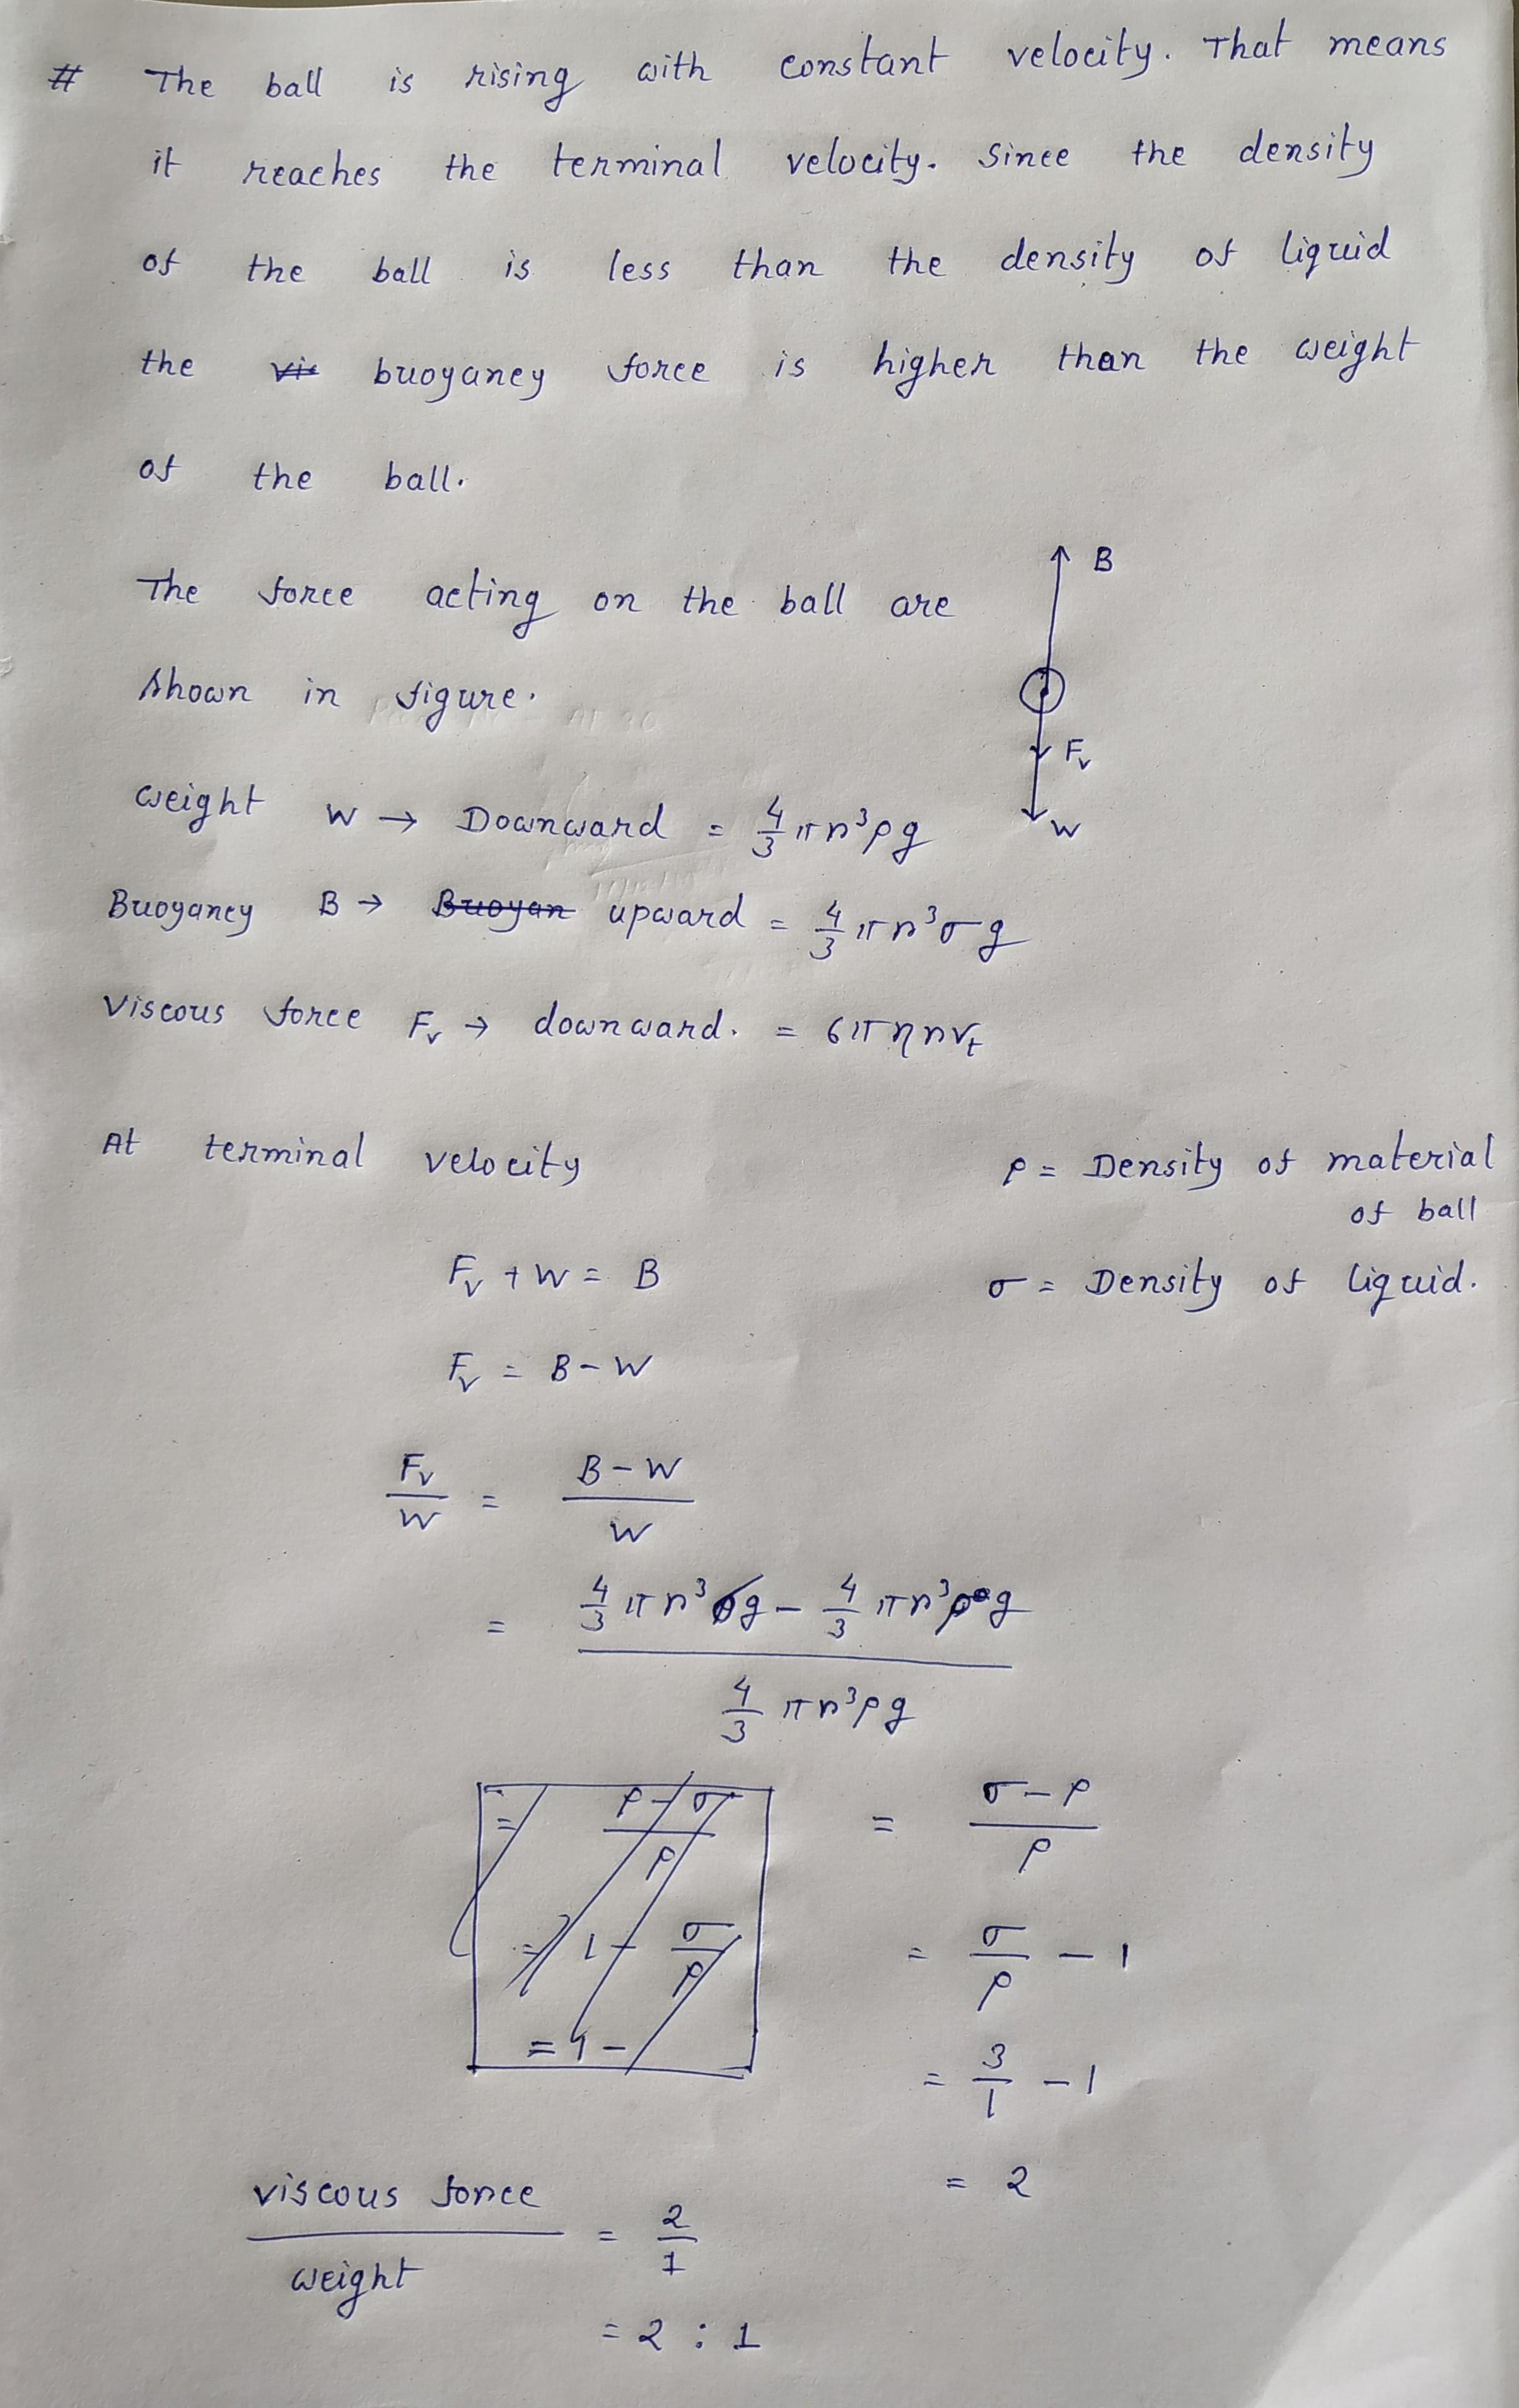 # The ball is rising with constant velocity. That means
it reaches the terminal velocity. Since the density
of the ball is less than the density of liquid
the vis buoyancy force is higher than the weight
of the ball.
The force acting on the ball are
shown in figure.
B
Fᵥ
W
Weight W → Downward = 4/3 πr³ρg
Buoyancy B → Buoyan upward = 4/3 πr³σg
Viscous force Fᵥ → downward. = 6πηrvₜ
At terminal velocity
ρ = Density of material
of ball
σ = Density of liquid.
Fᵥ + W = B
Fᵥ = B - W
Fᵥ/W = (B - W)/W
= (4/3 πr³σg - 4/3 πr³ρg)/(4/3 πr³ρg)
= (ρ - σ)/ρ
= 1 - σ/ρ
= 1 -
= (σ - ρ)/ρ
= σ/ρ - 1
= 3/1 - 1
= 2
viscous force/weight = 2/1
= 2 : 1